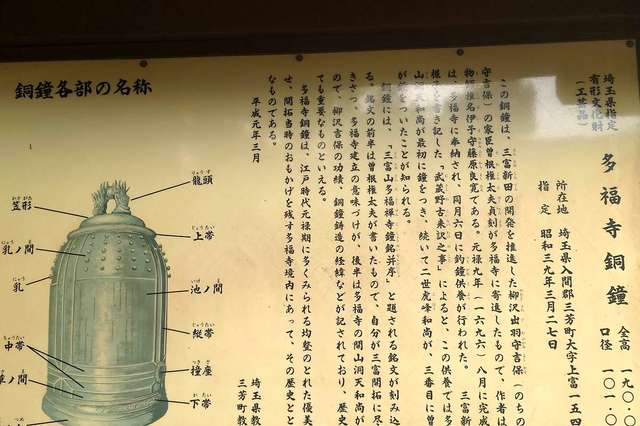 埼玉県指定
有形文化財
（工芸品）
多福寺銅鐘
全高
口径
所在地　埼玉県入間郡三芳町大字上富一五四
指　定　昭和三九年三月二七日
この銅鐘は、三富新田の開発を推進した柳沢出羽守吉保（のちの
守吉保）の家臣曽根権太夫貞刻が多福寺に寄進したもので、作者は
物師椎名伊予守藤原良寛である。元禄九年（一六九六）八月に完成
は、多福寺に奉納され、同月六日に釣鐘供養が行われた。　三富新
を書き記した「武蔵野古来訳之事」によると、この供養では多
山洞天和尚が最初に鐘をつき、続いて二世虎峰和尚が、三番目に曽
が鐘をついたことが知られる。
銅鐘には、「三富山多福禅寺鐘銘并序」と題される銘文が刻み込
る。銘文の前半は曽根権太夫が書いたもので、自分が三富開拓に尽
きさつ、多福寺建立の意味づけが、後半は多福寺の開山洞天和尚が
ので、柳沢吉保の功績、銅鐘鋳造の経緯などが記されており、歴史
ても重要なものといえる。
多福寺銅鐘は、江戸時代元禄期に多くみられる均整のとれた優美
せ、開拓当時のおもかげを残す多福寺境内にあって、その歴史とと
なものである。
平成元年三月
埼玉県教
三芳町教
銅鐘各部の名称
龍頭
りゅうず
笠形
かさがた
上帯
じょうたい
乳ノ間
にゅう
乳
にゅう
池ノ間
いけ
縦帯
じゅうたい
中帯
ちゅうたい
撞座
つきざ
草ノ間
下帯
かたい